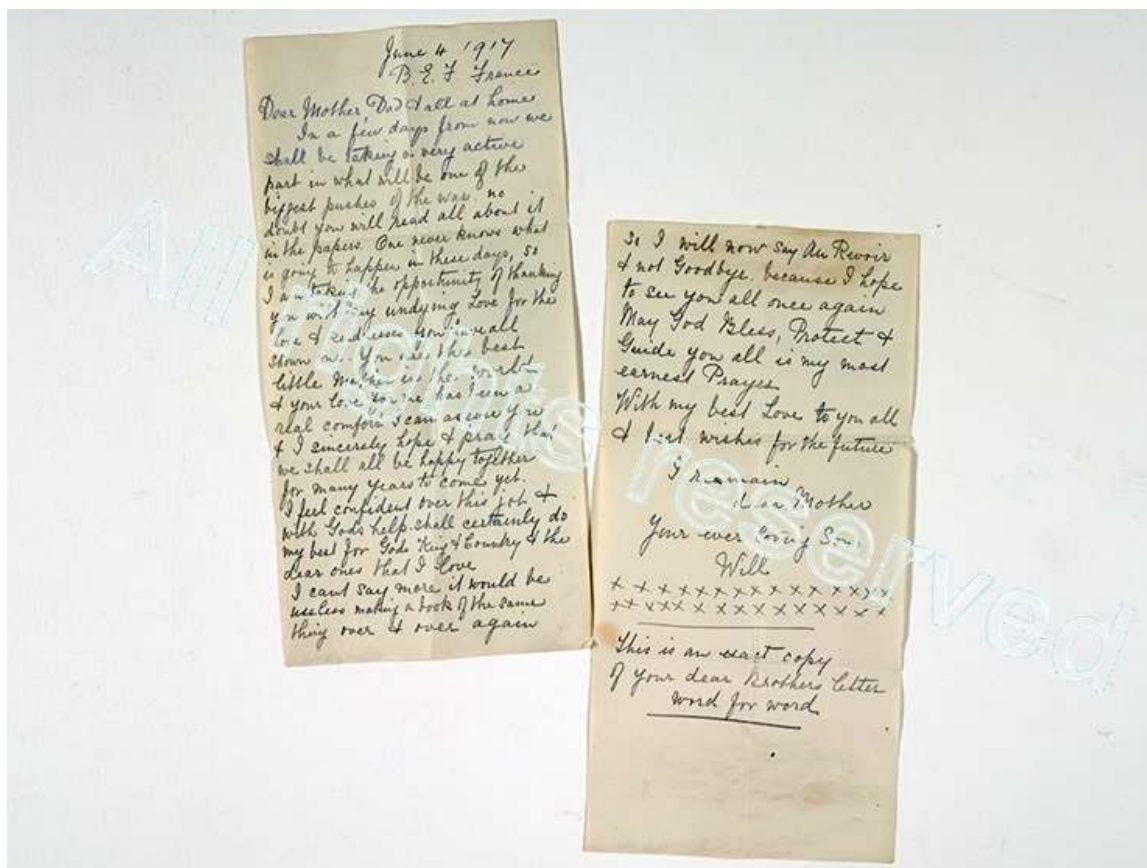 June 4 1917
B.E.F France
Dear Mother, Dad & all at home
In a few days from now we
shall be taking a very active
part in what will be one of the
biggest pushes of the war, no
doubt you will read all about it
in the papers. One never knows what
is going to happen in these days, so
I am taking the opportunity of thanking
you with my undying Love for the
love & kindnesses you have all
shown me. You are the best
little Mother in the world
& your love to me has been a
real comfort I can assure you
& I sincerely hope & pray that
we shall all be happy together
for many years to come yet.
I feel confident over this job &
with Gods help shall certainly do
my best for Gods King & Country & the
dear ones that I love
I cant say more it would be
useless making a book of the same
thing over & over again
So I will now say Au Revoir
& not Goodbye. because I hope
to see you all once again
May God Bless, Protect &
Guide you all is my most
earnest Prayer
With my best Love to you all
& best wishes for the future
I remain
dear Mother
Your ever loving Son
Will
x x x x x x x x x x x x x x x x
x x x x x x x x x x x x x x x x
This is an exact copy
of your dear Brothers letter
word for word
All rights reserved